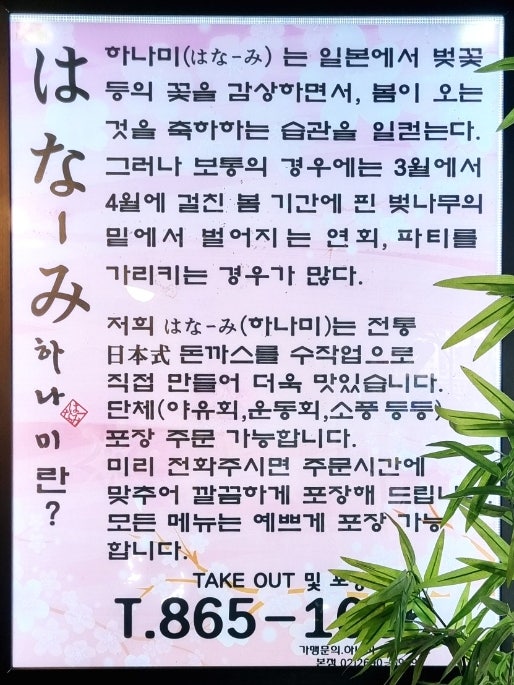 はなーみ
하나미란?
하나미(はなーみ) 는 일본에서 벚꽃
등의 꽃을 감상하면서, 봄이 오는
것을 축하하는 습관을 일컫는다.
그러나 보통의 경우에는 3월에서
4월에 걸친 봄 기간에 핀 벚나무의
밑에서 벌어지는 연회, 파티를
가리키는 경우가 많다.
저희 はなーみ(하나미)는 전통
日本式 돈까스를 수작업으로
직접 만들어 더욱 맛있습니다.
단체(야유회,운동회,소풍등등)
포장 주문 가능합니다.
미리 전화주시면 주문시간에
맞추어 깔끔하게 포장해 드립니
모든 메뉴는 예쁘게 포장 가능
합니다.
TAKE OUT 및
T.865-10
가맹문의.
본점